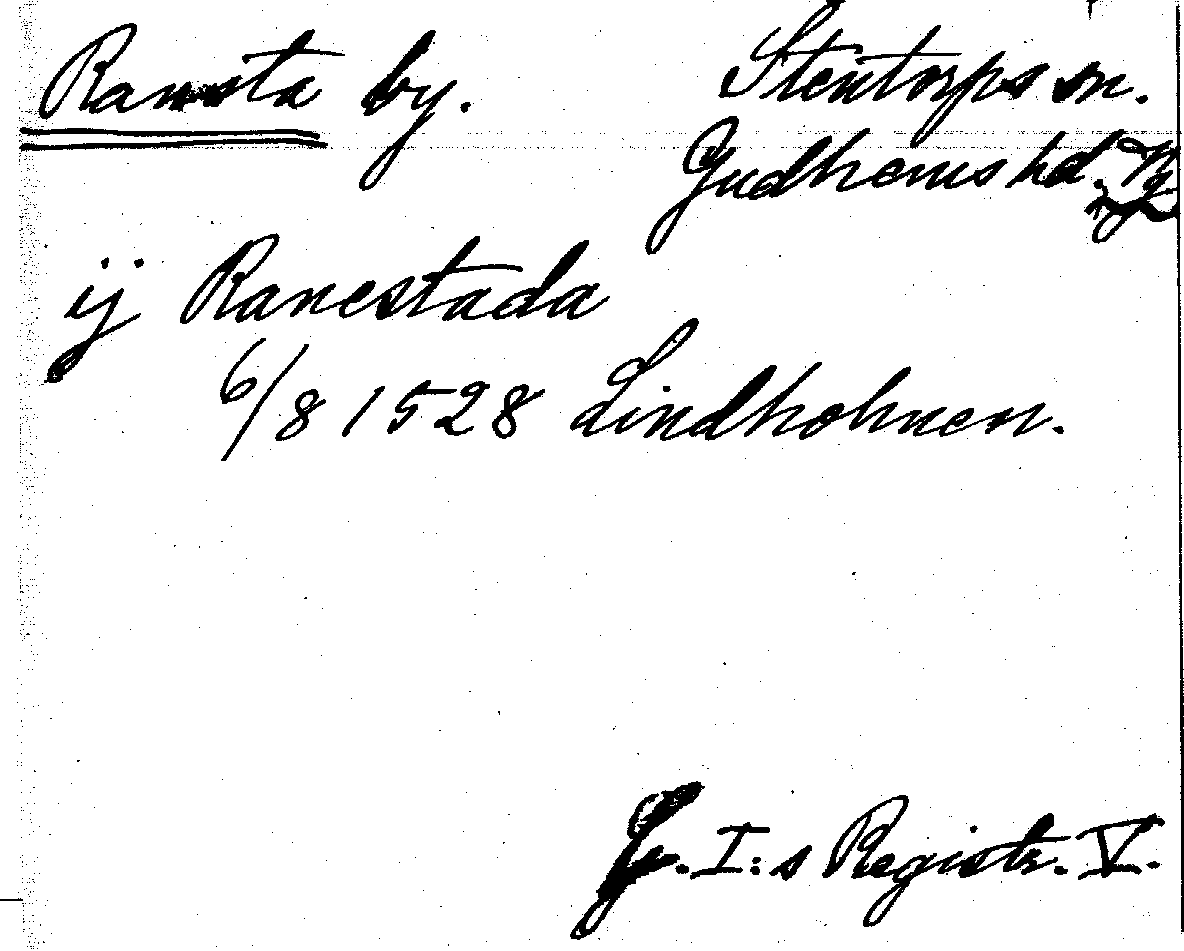 Ransta by. Stentorps sn.
Gudhems hd. Vg
ij Ranestada
6/8 1528 Lindholmen.
G. I:s Registr. V.